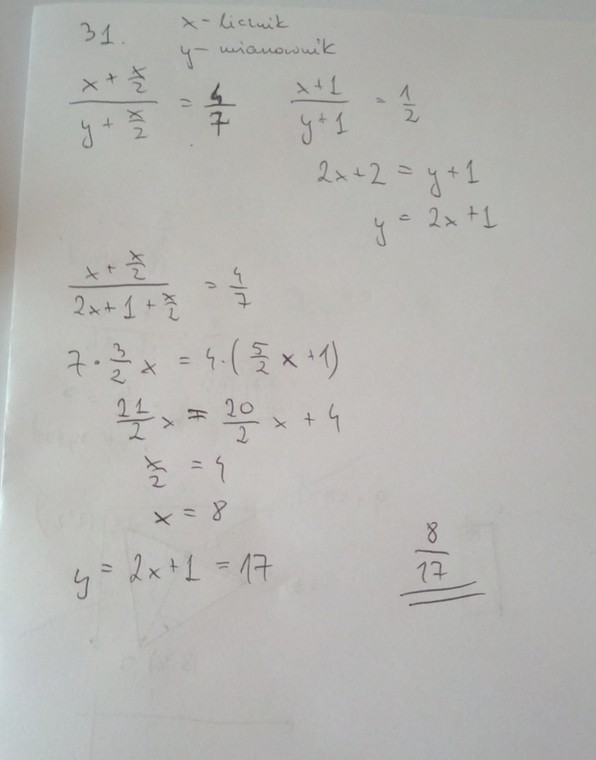 31. x - licznik
y - mianownik
(x + x/2)/(y + x/2) = 4/7
(x+1)/(y+1) = 1/2
2x+2 = y+1
y = 2x+1
(x + x/2)/(2x+1+x/2) = 4/7
7 · 3/2 x = 4·(5/2 x+1)
21/2 x = 20/2 x + 4
x/2 = 4
x = 8
y = 2x+1 = 17
8/17